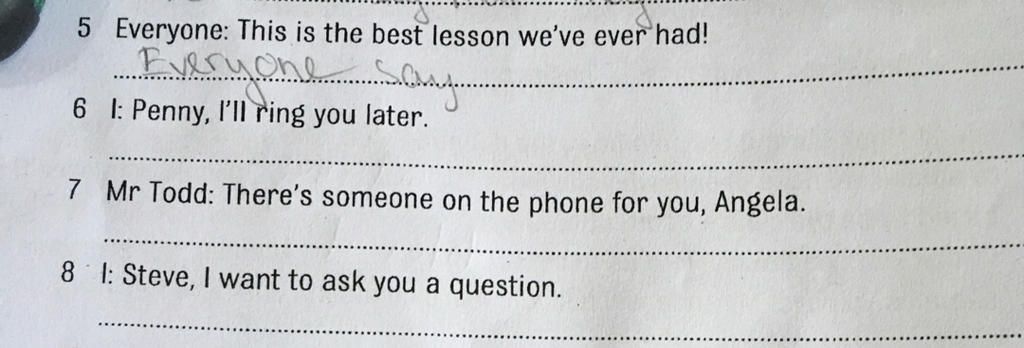 5 Everyone: This is the best lesson we've ever had!
Everyone say
6 I: Penny, I'll ring you later.
7 Mr Todd: There's someone on the phone for you, Angela.
8 I: Steve, I want to ask you a question.